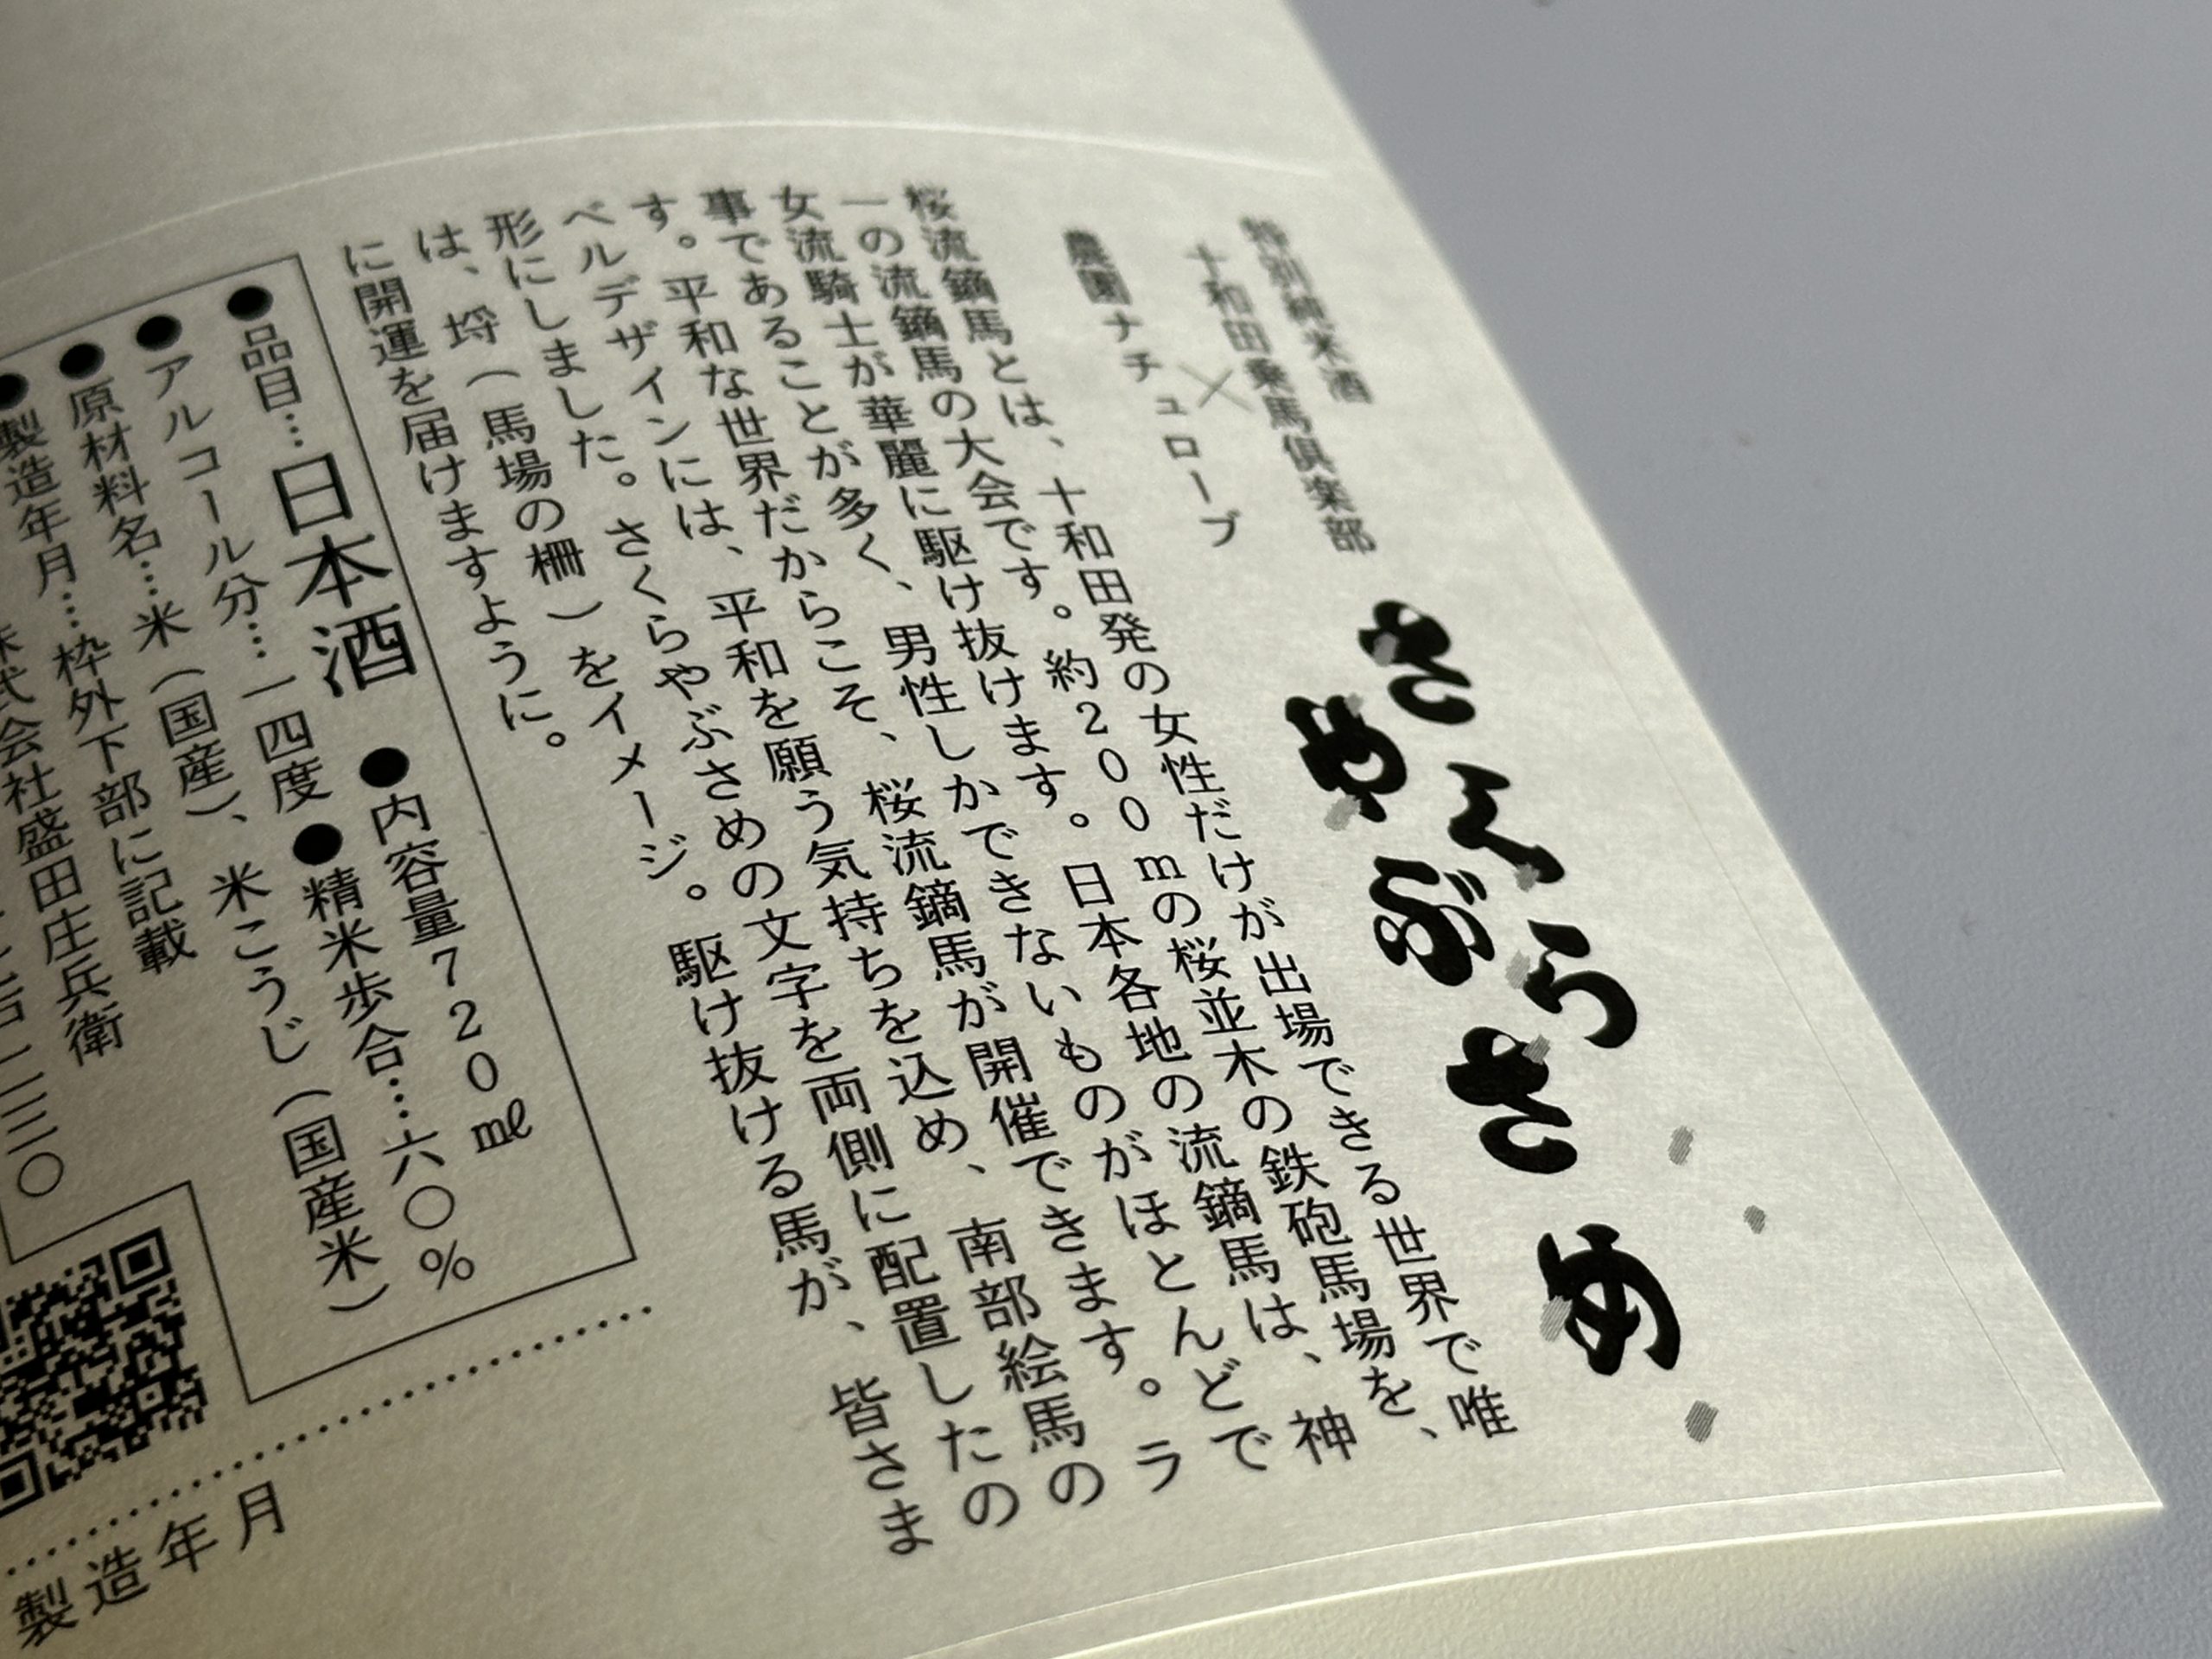 特別純米酒
十和田乗馬倶楽部
×
農園ナチュローブ
さくら
やぶさめ
桜流鏑馬とは、十和田発の女性だけが出場できる世界で唯
一の流鏑馬の大会です。約200mの桜並木の鉄砲馬場を、
女流騎士が華麗に駆け抜けます。日本各地の流鏑馬は、神
事であることが多く、男性しかできないものがほとんどで
す。平和な世界だからこそ、桜流鏑馬が開催できます。ラ
ベルデザインには、平和を願う気持ちを込め、南部絵馬の
形にしました。さくらやぶさめの文字を両側に配置したの
は、埒(馬場の柵)をイメージ。駆け抜ける馬が、皆さま
に開運を届けますように。
●品目…日本酒 ●内容量720㎖
●アルコール分…一四度●精米歩合…六〇%
●原材料名…米(国産)、米こうじ(国産米)
●製造年月…枠外下部に記載
株式会社盛田庄兵衛
二三〇
製造年月